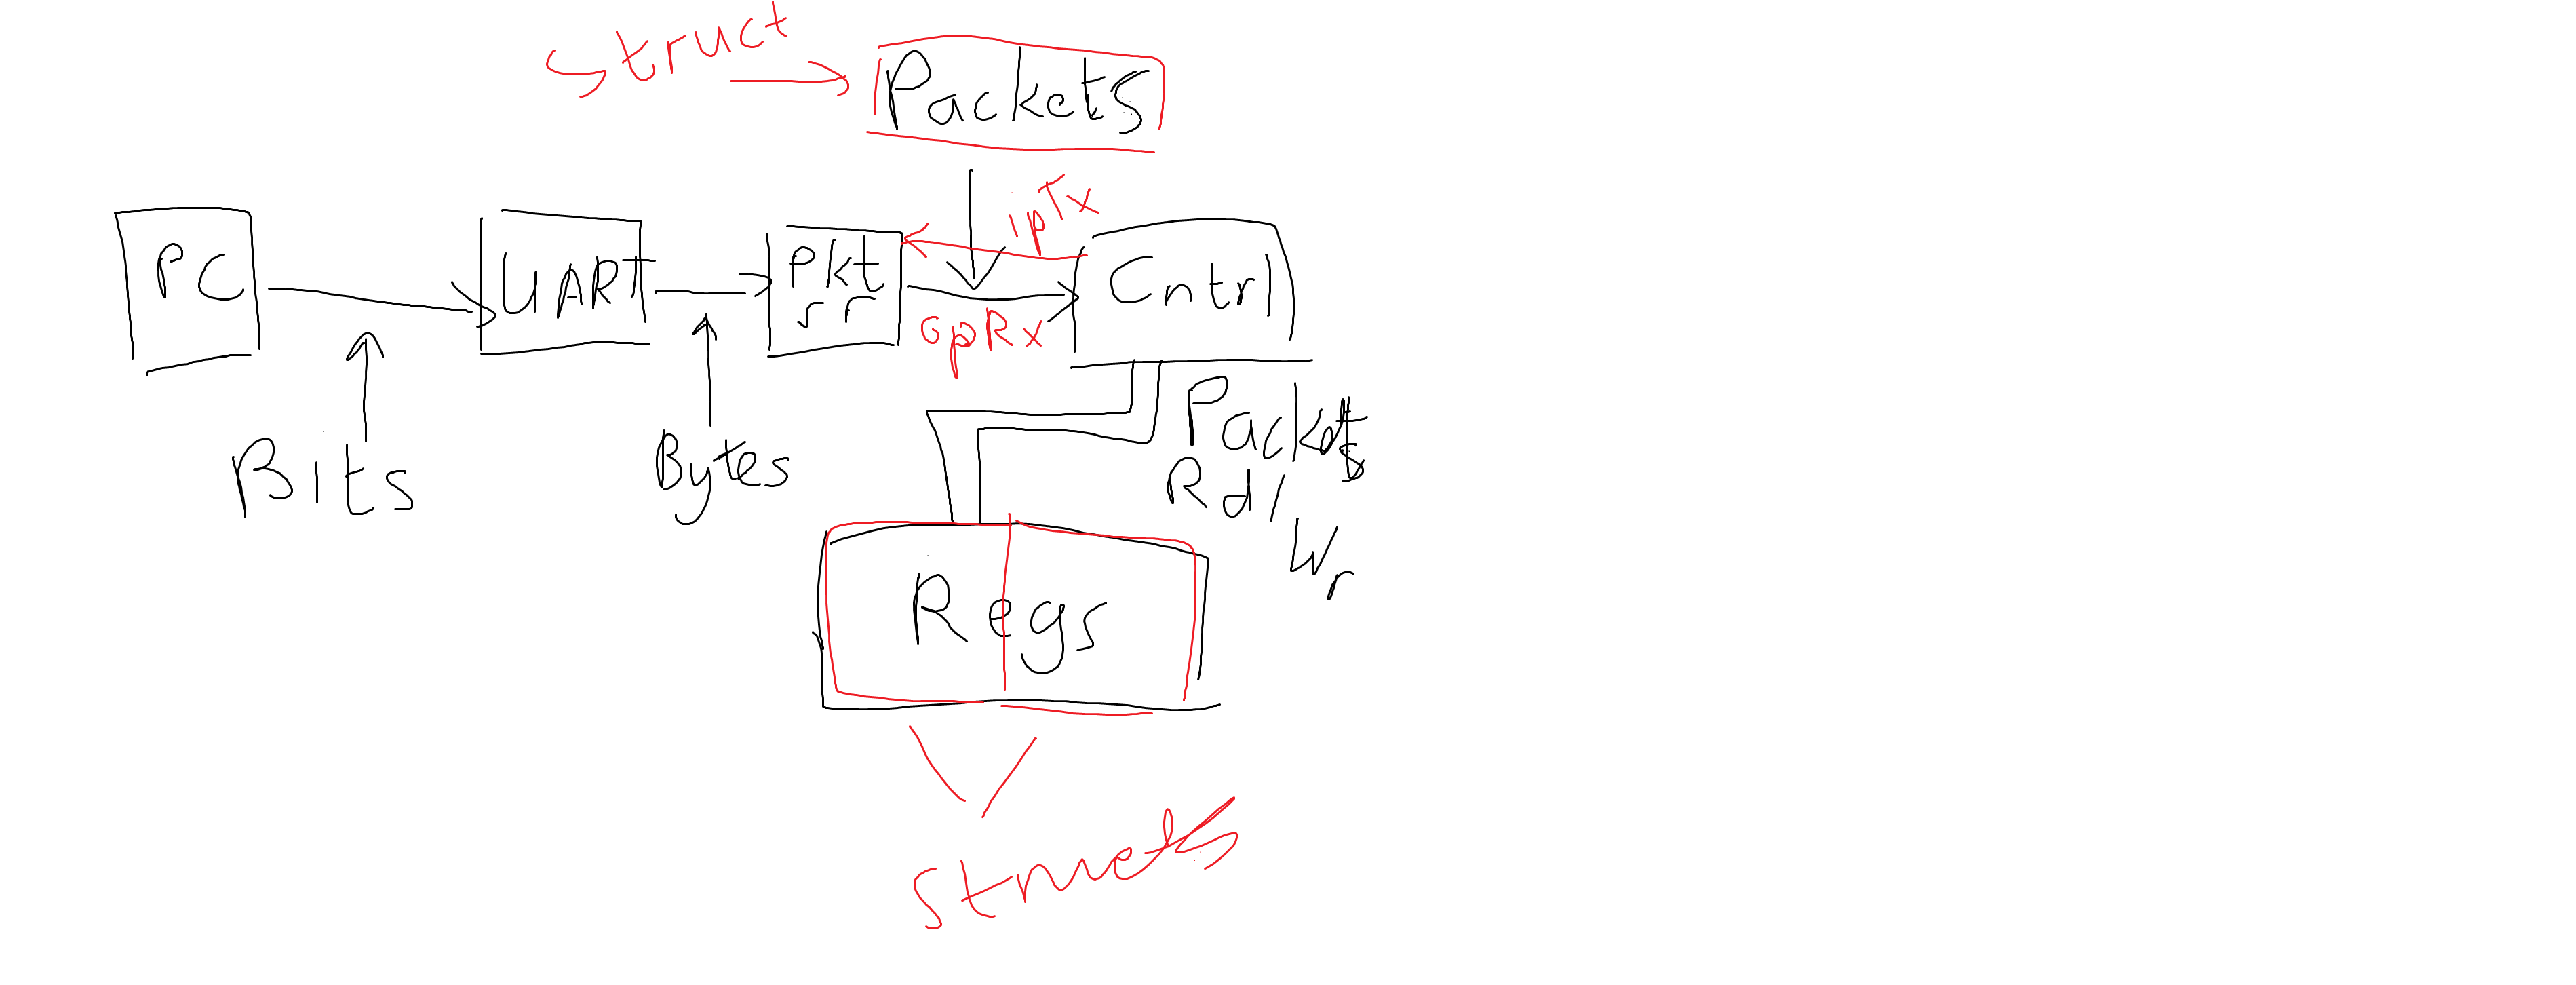 Struct
Packets
ipTx
PC
UART
Pkt
sr
Cntrl
opRx
Bits
Bytes
Packets
Rd/
Wr
Regs
Structs